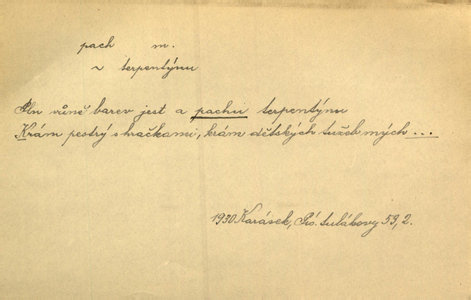 pach m.
~ terpentýnu
Pln vůně barev jest a pachu terpentýnu
Krám pestrý s hračkami, krám dětských tužeb mých ...
1930 Karásek, Pís. tulákovy 53, 2.